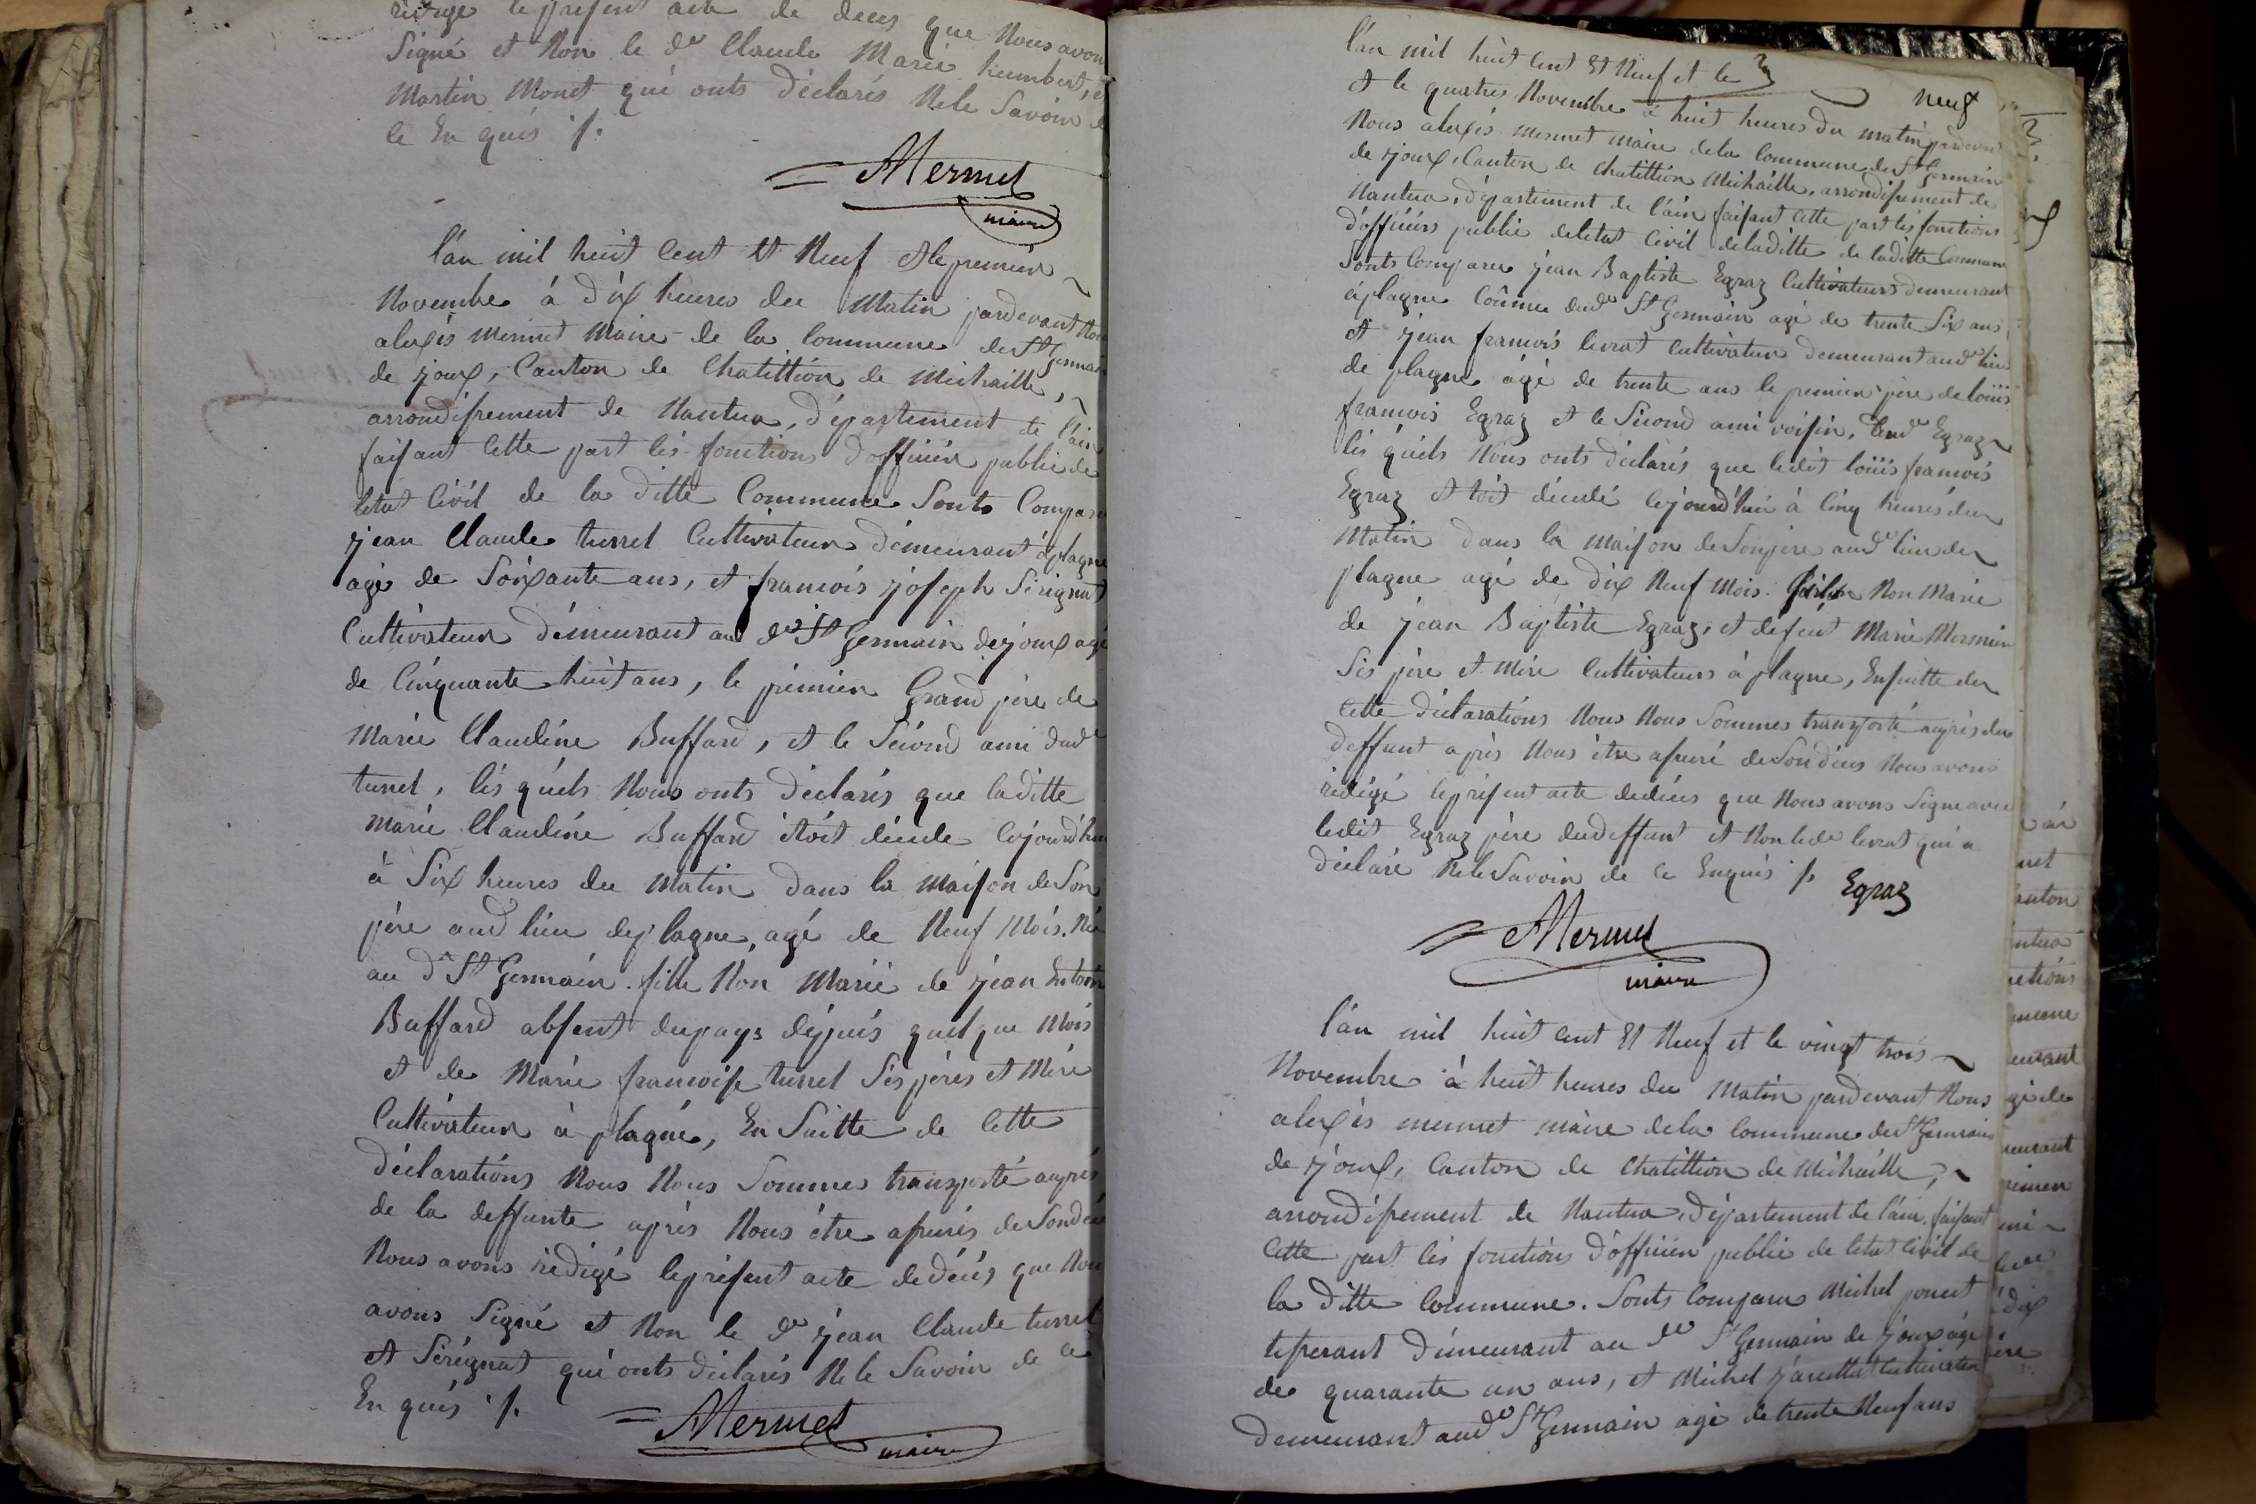 rédigé le présent acte de decès que Nous avons
Signé et Non le dr Claude Marie humbert, et
Martin Monet qui onts déclarés Ne le Savoir de
ce En quis ./.
AMermet
maire
l'án mil huit Cent Et Neuf et le premier
Novembre á dix heures du Matin pardevant Nous
alexis mermet Maire de la Commune de St Germain
de joux, Canton de Chatillion de Michaille,
arrondissement de Nantua, département de l'ain
faisant Cette part lés fonctions d'officiér public de
létat Civil de la ditte Commune Sonts Comparu
jean Claude turrel Cultivateur démeurant á plagne
agé de Soixante ans, et francois joseph Sérignat
Cultivateur démeurant au dr St Germain de joux agé
de Cinquante huit ans, le prémier Grand pére de
Marie Claudine Buffard, et le Sécond ami dud
turrel, lés quels Nous onts déclarés que la ditte
Marie Claudine Buffard étoit décédé Cejourd'hui
á Six heures du Matin dans la Maison de Son
pére aud lieu de plagne, agé de Neuf Mois. Né
au dr St Germain. fille Non Marié de jean Antoine
Buffard absent du pays dépuis quelque Mois
et de Marie francoise turrel Sés péres et Mére
Cultivateur á plagne, En Suitte de Cette
déclarations Nous Nous Sommes transporté auprés
de la deffunte aprés Nous étre assurés de Son décés
Nous avons rédigé le présent acte de décés que Nous
avons Signé et Non le dr jean Claude turrel
et Sérignat qui onts déclarés Ne le Savoir de ce
En quis ./.
AMermet
maire
l'an mil huit Cent Et Neuf et le
neuf
et le quatres Novembre á huit heures du matin pardevant
Nous alexis mermet maire de la Commune de St Germain
de joux, Canton de Chatillion Michaille, arrondissement de
Nantua, département de l'ain faisant Cette part lés fonctions
d'officiers public de létat Civil de laditte de laditte Commune
Sonts Comparu jean Baptiste Egraz Cultivateurs demeurant
á plagne Cômune dud St Germain agé de trente Six ans
et jean francois levrat Cultivateur demeurant aud lieu
de plagne agé de trente ans le premier pére de loüis
francois Egraz et le Sécond ami voisin, dud Egraz
lés quels Nous onts déclarés que ledit loüis francois
Egraz étoit décédé Cejourd'hui á Cinq heures du
Matin dans la Maison de Son pére aud lieu de
plagne agé de dix Neuf Mois. Non Marié
de jean Baptiste Egraz, et defeut Marie Mermier
Sés pére et Mére Cultivateurs á plagne, En suitte de
Cette déclarations Nous Nous Sommes transporté auprés du
deffunt aprés Nous étre assuré de Son décés Nous avons
rédigé le présent acte de décés que Nous avons Signe avec
ledit Egraz pére dudeffunt et Non le dr levrat qui a
déclaré Ne le Savoir de ce Enquis ./.
Egraz
AMermet
maire
l'án mil huit Cent Et Neuf et le vingt trois
Novembre á huit heures du Matin pardevant Nous
alexis mermet maire de la Commune de St Germain
de joux, Canton de Chatillion de Michaille,
arrondissement de Nantua, département de l'ain. faisant
Cette part lés fonctions d'officiér public de létat Civil de
la ditte Commune. Sonts Comparu Michel poncet
tisserant démeurant au dr St Germain de joux agé
de quarante un ans, et Michel Cultivateur
demeurant aud St Germain agé de trente Neuf ans